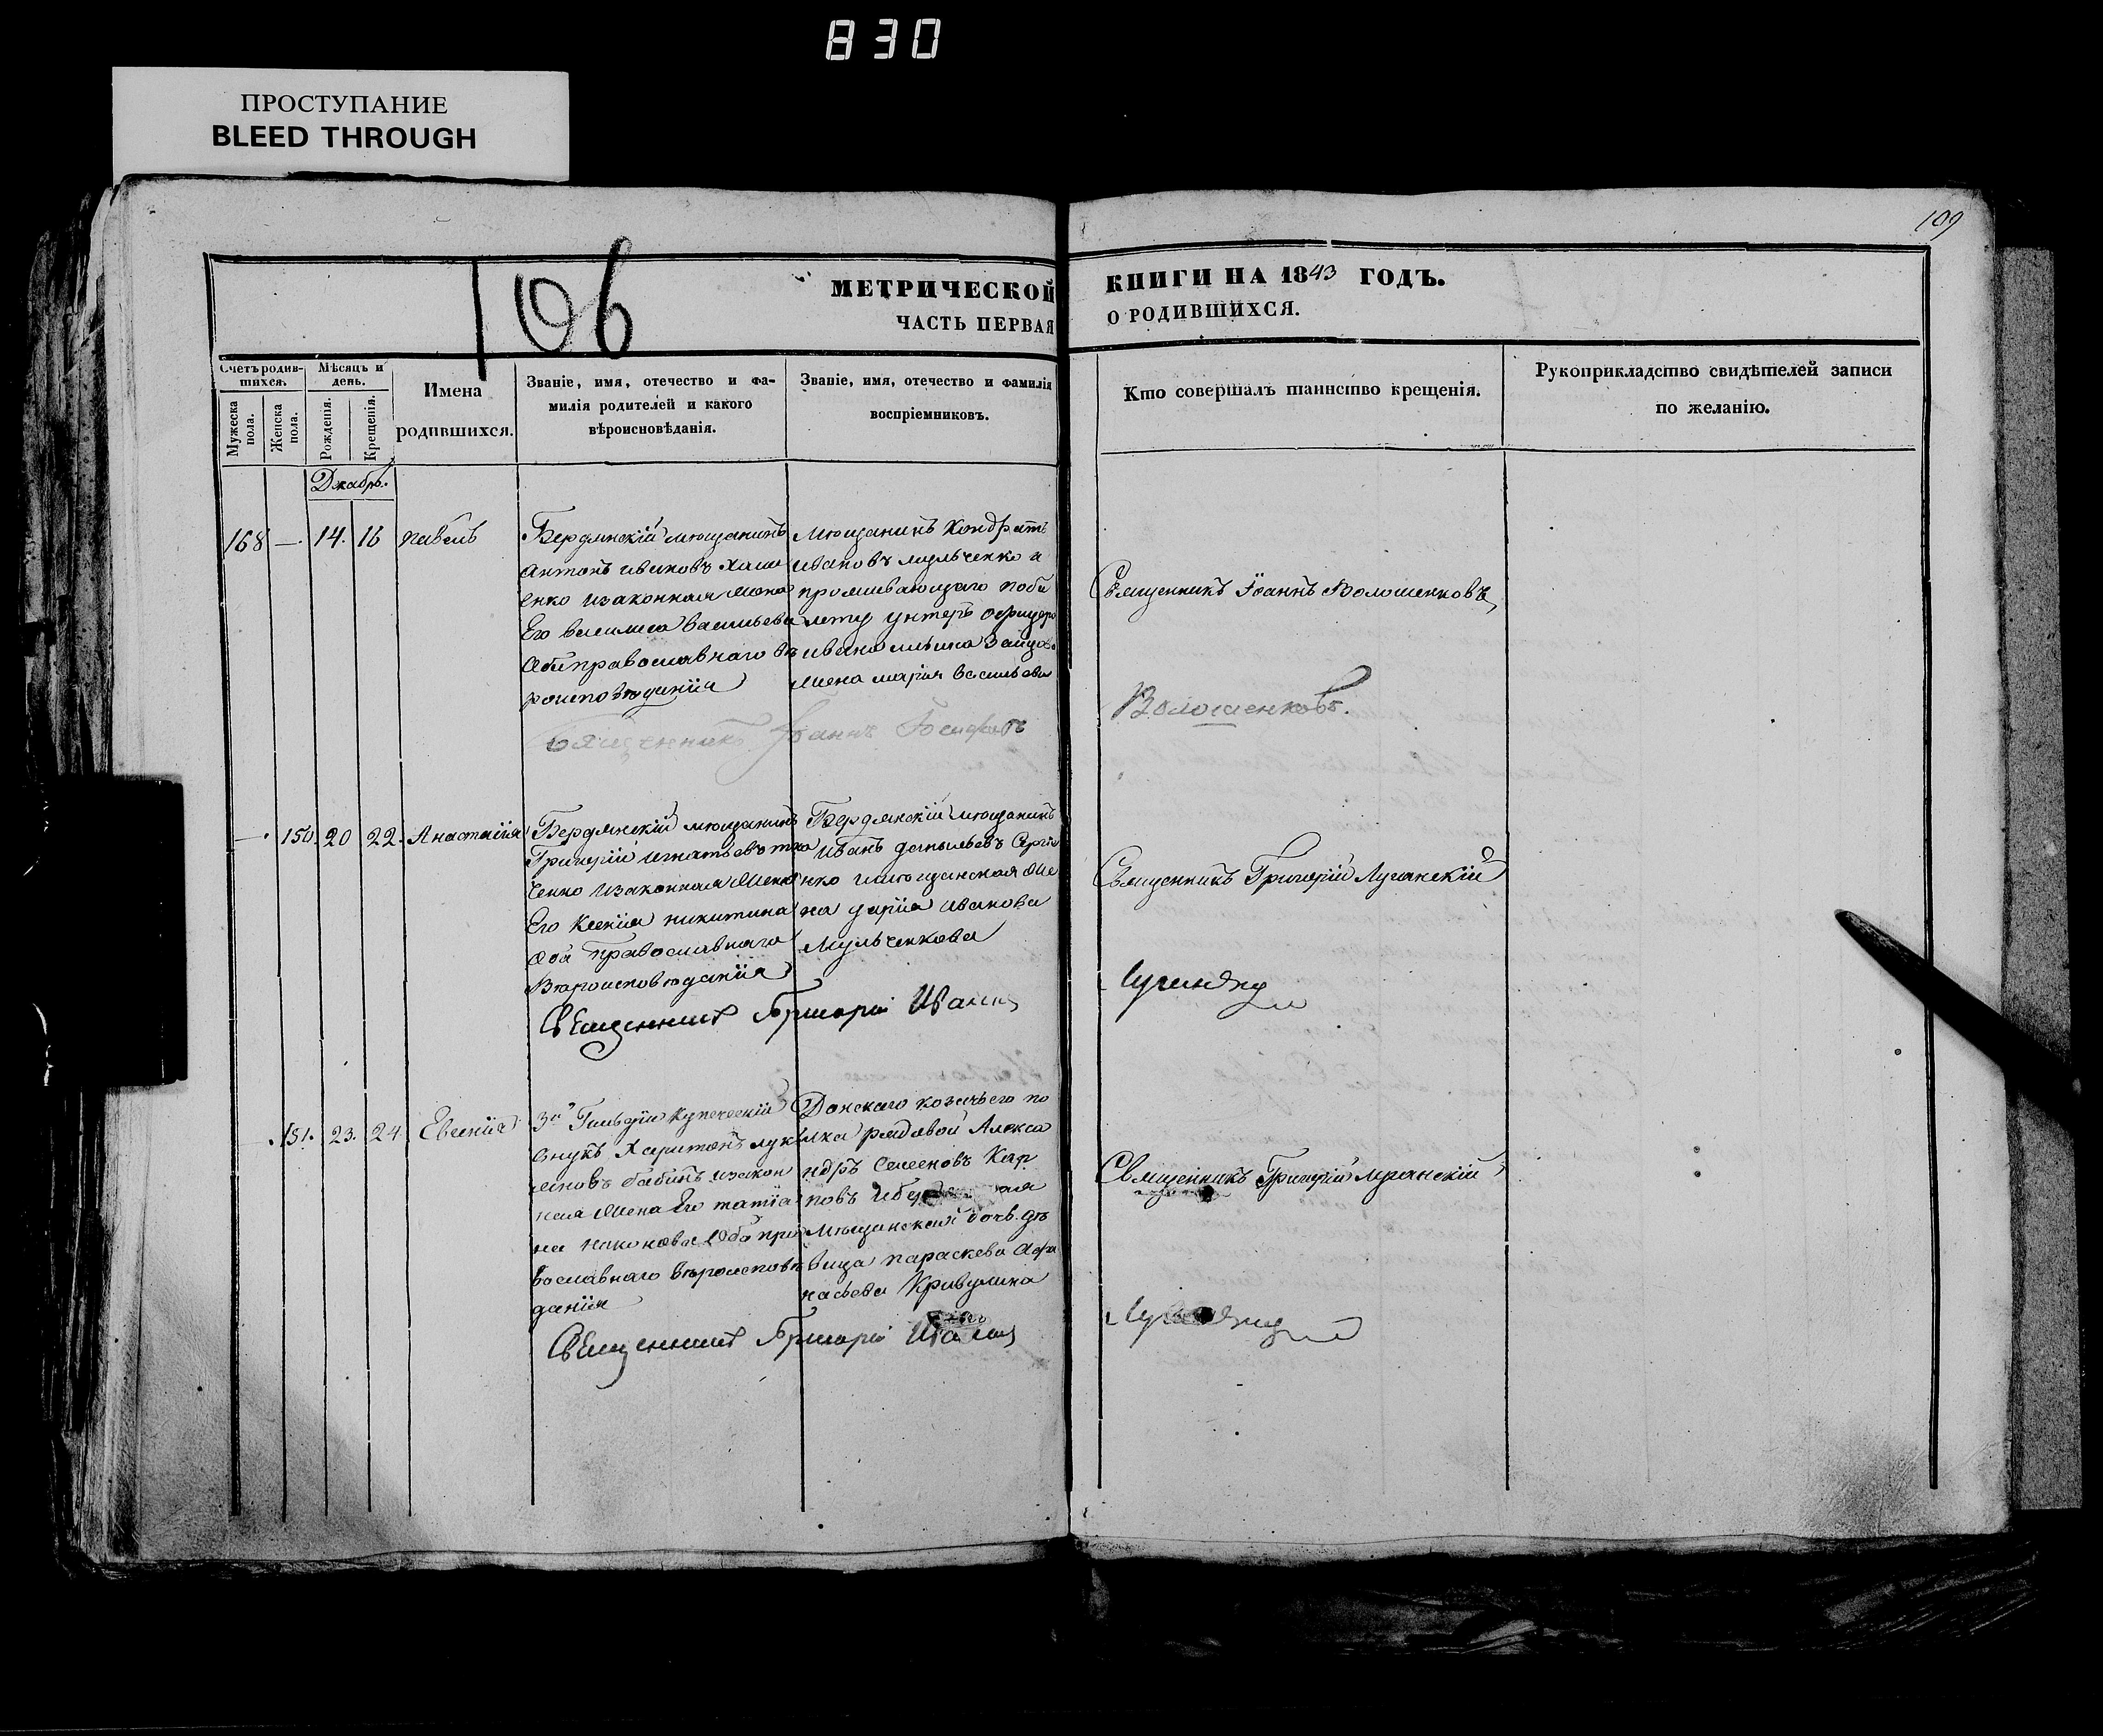 830
ПРОСТУПАНИЕ
BLEED THROUGH
109
106
МЕТРИЧЕСКОЙ
ЧАСТЬ ПЕРВАЯ
КНИГИ НА 1843 ГОДЪ.
О РОДИВШИХСЯ.
Счетъ родив-
шихся.
Мужеска пола.
Женска пола.
Мѣсяцъ и
день.
Рожденія.
Крещенія.
Имена
родившихся.
Званіе, имя, отечество и фа-
милія родителей и какого
вѣроисновѣданія.
Званіе, имя, отечество и фамилія
воспріемниковъ.
Кто совершалъ таинство крещенія.
Рукоприкладство свидѣтелей записи
по желанію.
Декабрь.
168 —. 14. 16 Павелъ
Бердянскій мѣщанинъ
Антонъ Ивановъ
енко изаконная жена
Его василиса васильева
оба православнаго вѣ
роисповѣданія
мѣщанинъ Кондратъ
Ивановъ мульченко а
проживающаго
унтеръ офицера
ивана
жена мария васильева
Священникъ Іоаннъ
Священникъ Іоаннъ Волошенковъ
Волошенковъ.
—. 150. 20 22. Анастасія
Бердянскій мѣщанинъ
Григорій игнатьевъ тка
ченко изаконная жена
Его Ксенія никитина
оба православнаго
вѣроисповѣданія
Бердянскій мѣщанинъ
иванъ данильевъ Сергіе
нко имѣщанская же
на дарія иванова
Мульченкова
Священникъ Григорій
Священникъ Григорій Луганскій
151. 23. 24 Евгенія
3й Гильдіи купеческій
внукъ Харитонъ лукъ
яновъ бабинъ изакон
ная жена Его татіа
на никонова оба пра
вославнаго вѣроисповѣ
данія
Донскаго козачьего по
лка рядовой Алекса
ндръ Семеновъ Кар
повъ
мѣщанская дочь дѣ
вица параскева Афа
насьева Кривулина
Священникъ Григорій
Священникъ Григорій луганскій